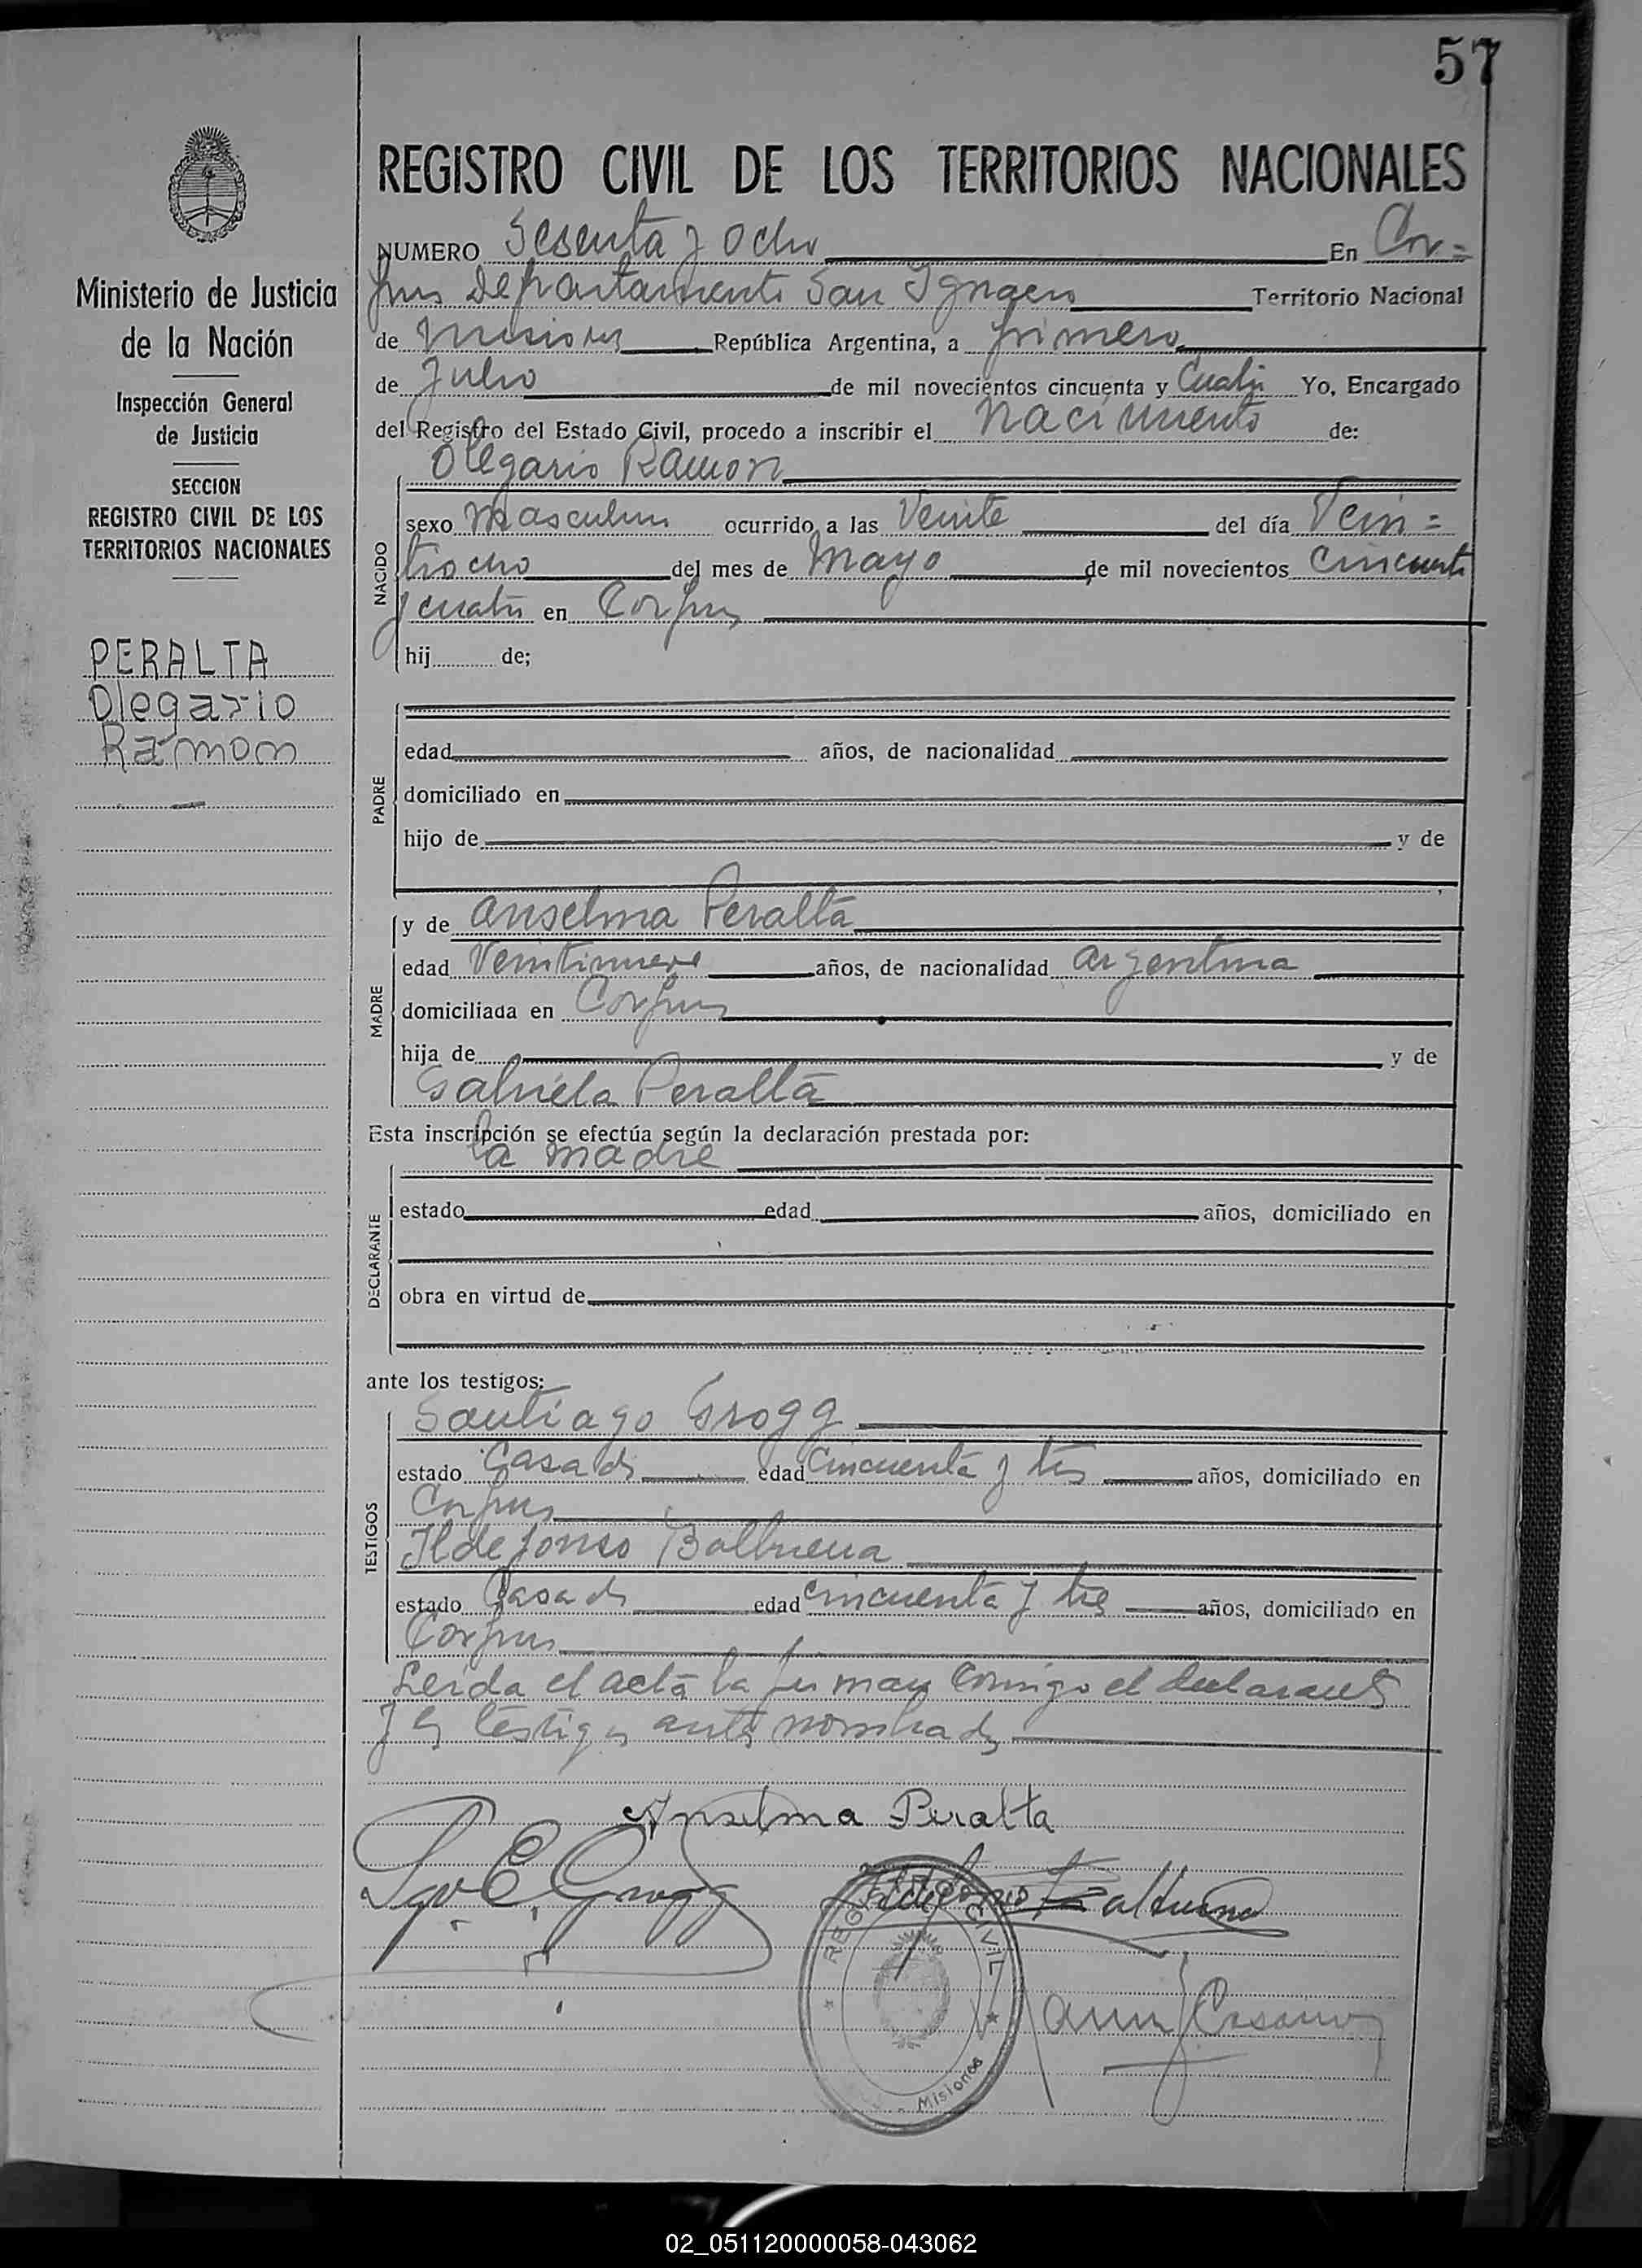 57
REGISTRO CIVIL DE LOS TERRITORIOS NACIONALES
NUMERO Sesenta y Ocho En Cor=
pus Departamento San Ignacio Territorio Nacional
de Misiones República Argentina, a primero
de Julio de mil novecientos cincuenta y Cuatro Yo, Encargado
del Registro del Estado Civil, procedo a inscribir el Nacimiento de:
Olegario Ramon
NACIDO
sexo Masculino ocurrido a las Veinte del día Vein=
tiocho del mes de Mayo de mil novecientos Cincuenta
y cuatro en Corpus
hij de;
PADRE
edad años, de nacionalidad
domiciliado en
hijo de y de
MADRE
y de Anselma Peralta
edad Veintinueve años, de nacionalidad Argentina
domiciliada en Corpus
hija de y de
Gabriela Peralta
Esta inscripción se efectúa según la declaración prestada por:
la madre
DECLARANTE
estado edad años, domiciliado en
obra en virtud de
ante los testigos:
TESTIGOS
Santiago Grogg
estado Casado edad Cincuenta y tres años, domiciliado en
Corpus
Ildefonso Balbuena
estado Casado edad cincuenta y tres años, domiciliado en
Corpus
Leida el acta la firman conmigo el declarante
y los testigos antes nombrados
Anselma Peralta
Sgo E. Grogg
Ildefonso Balbuena
REGISTRO CIVIL
Misiones
Ministerio de Justicia
de la Nación
Inspección General
de Justicia
SECCION
REGISTRO CIVIL DE LOS
TERRITORIOS NACIONALES
PERALTA
Olegario
Ramon
02_051120000058-043062